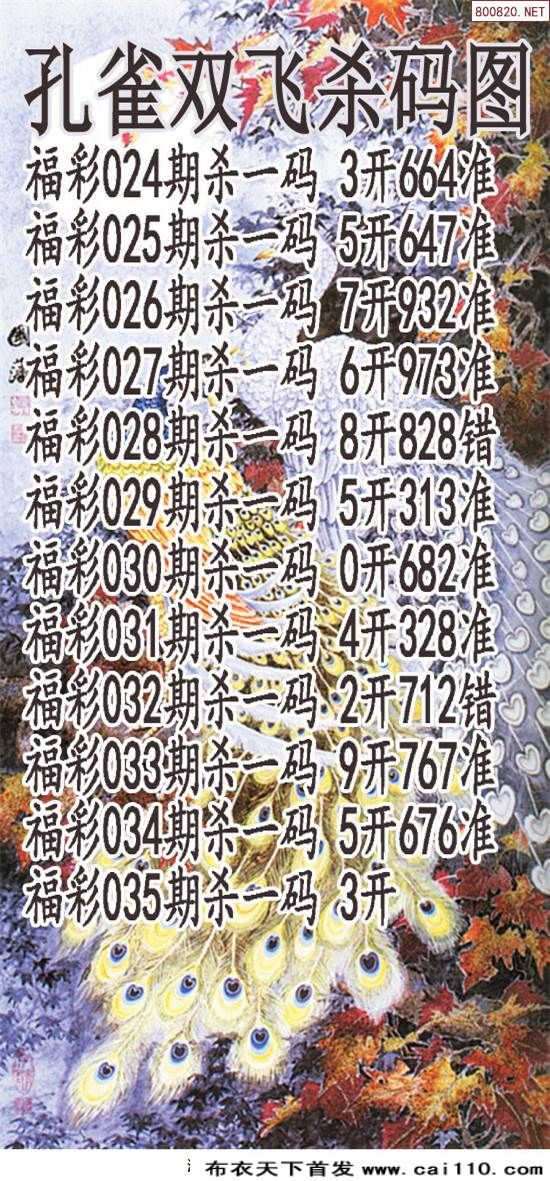 800820.NET
孔雀双飞杀码图
福彩024期杀一码 3开664准
福彩025期杀一码 5开647准
福彩026期杀一码 7开932准
福彩027期杀一码 6开973准
福彩028期杀一码 8开828错
福彩029期杀一码 5开313准
福彩030期杀一码 0开682准
福彩031期杀一码 4开328准
福彩032期杀一码 2开712错
福彩033期杀一码 9开767准
福彩034期杀一码 5开676准
福彩035期杀一码 3开
布衣天下首发 www.cai110.com